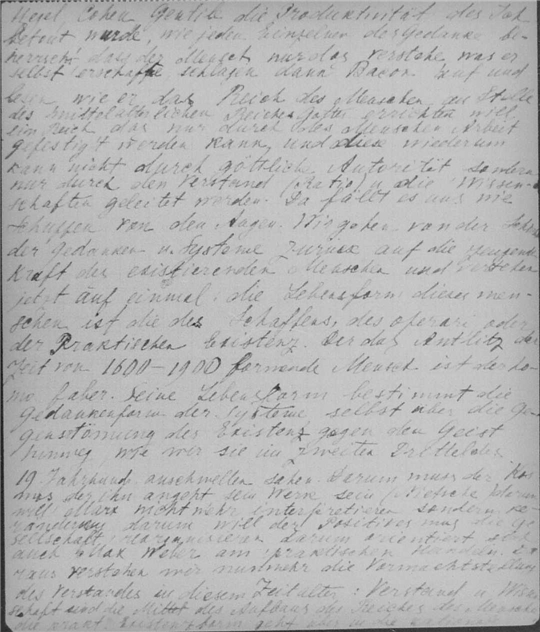 Hegel, Cohen, Gentile die Produktivität des Ich
betont wurde, wie jeden Einzelnen der Gedanke be-
herrscht dass der Mensch nur das verstehe, was er
selbst erschaffte, schlagen dann Bacon auf und
lesen, wie er das Reich des Menschen an Stelle
des mittelalterlichen Reiches Gottes errichten will
ein Reich das nur durch des Menschen Arbeit
gefestigt werden kann, und diese wiederum
kann nicht durch göttliche Autorität sondern
nur durch den Verstand (ratio) u. die Wissen-
schaften geleitet werden. Da fällt es uns wie
Schuppen von den Augen. Wir gehen von der
der Gedanken u. Systeme zurück auf die zeugende
Kraft der existierenden Menschen und verstehen
jetzt auf einmal: die Lebensform dieser men-
schen ist die des Schaffens, des operari oder
der Praktischen Existenz. Der das Antlitz der
Zeit von 1600-1900 formende Mensch ist der ho-
mo faber. Seine Lebensform bestimmt die
Gedankenform der Systeme selbst über die Ge-
genströmung der Existenz gegen den Geist
hinweg, wie wir sie im zweiten Drittel des
19 Jahrhund. anschwellen sahen. Darum muss der
der ihn angeht sein Werk sein
will Marx nicht mehr interpretieren sondern ve-
ränderung darum will der Positivismus die Ge-
sellschaft reorganisieren darum orientiert sich
auch Max Weber am praktischen Handeln.
verstehen wir nunmehr die Vormachtstellung
des Verstandes in diesem Zeitalter: Verstand u. Wissen-
schaft sind die Mittel des Aufbaus des Reiches des Menschen
die prakt. Existenzform geht